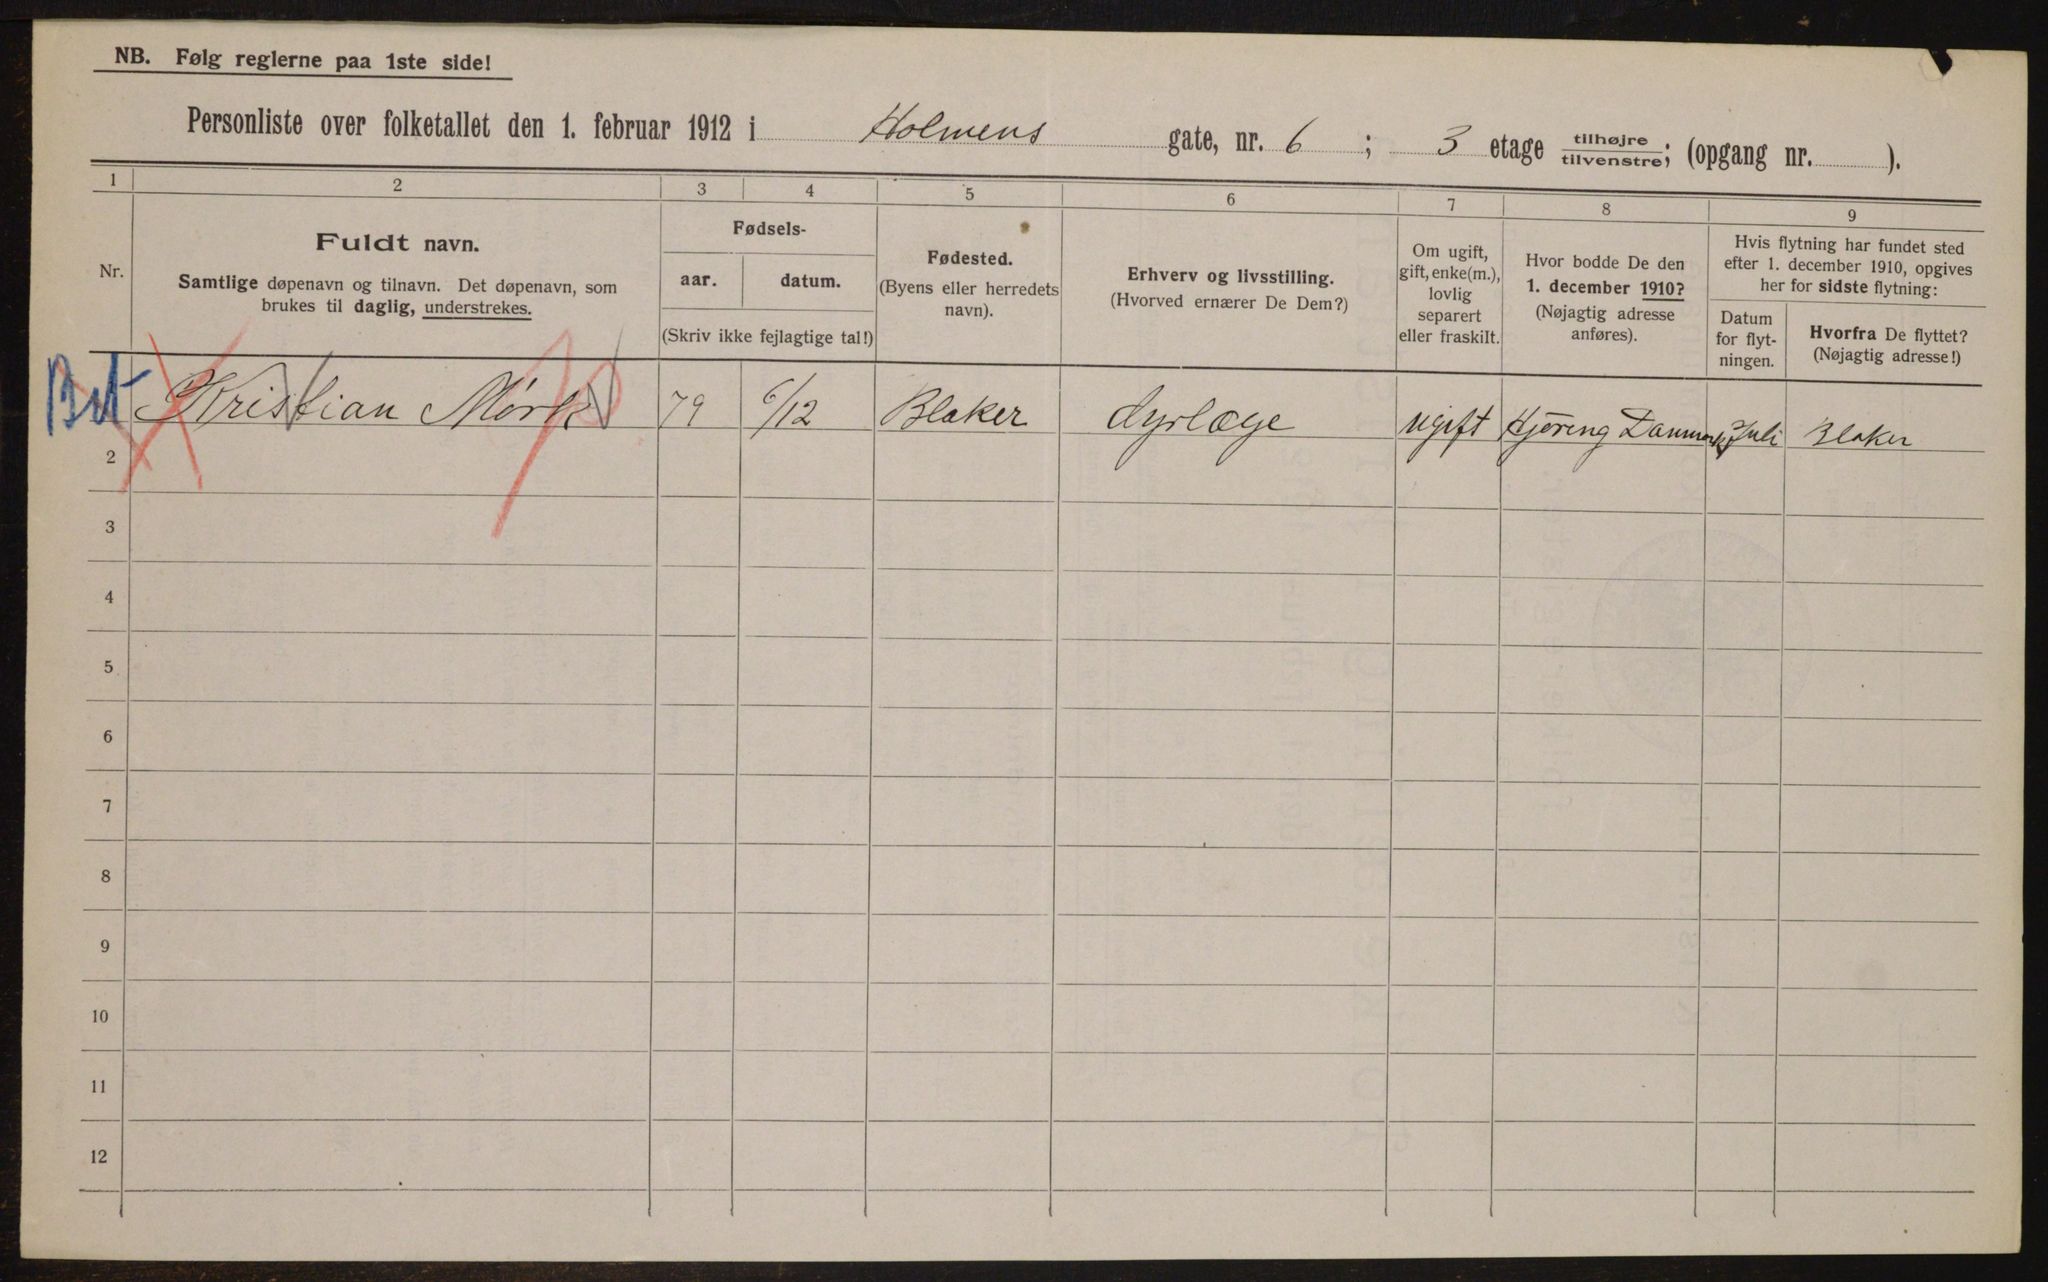 NB. Følg reglerne paa 1ste side!
Personliste over folketallet den 1. februar 1912 i Holmens gate, nr. 6 ; 3 etage tilhøjre tilvenstre; (opgang nr. ).
1 2 3 4 5 6 7 8 9
Nr.
Fuldt navn.
Samtlige døpenavn og tilnavn. Det døpenavn, som
brukes til daglig, understrekes.
Fødsels-
aar. datum.
(Skriv ikke fejlagtige tal!)
Fødested.
(Byens eller herredets
navn).
Erhverv og livsstilling.
(Hvorved ernærer De Dem?)
Om ugift,
gift, enke(m.),
lovlig
separert
eller fraskilt.
Hvor bodde De den
1. december 1910?
(Nøjagtig adresse
anføres).
Hvis flytning har fundet sted
efter 1. december 1910, opgives
her for sidste flytning:
Datum
for flyt-
ningen.
Hvorfra De flyttet?
(Nøjagtig adresse!)
Bet Kristian Mørk 79 6/12 Blaker dyrlæge ugift Hjöring Danmark Juli Blaker
2
3
4
5
6
7
8
9
10
11
12